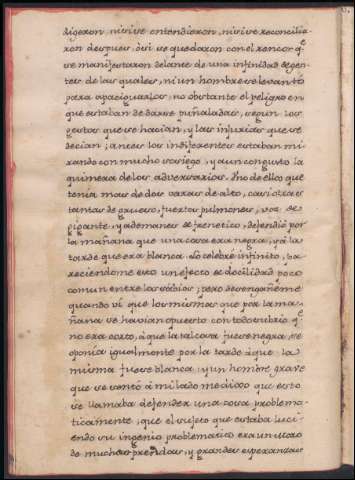 dixeron, ni si se entendieron, ni si se reconcilia-
ron despues, ò si se quedaron con el rencor qᵉ
se manifestaron delante de una infinidad de gen-
tes de las quales, ni un hombre se levantò
para apaciguarlos, no obstante el peligro en
que estaban de darse puñaladas, segun los
gestos que se hacian, y las injurias que se
decian; antes los indiferentes estaban mi-
rando con mucho sosiego, y aun con gusto la
quimera de los adversarios. Uno de ellos que
tenia mas de dos varas de alto, casi otras
tantas de grueso, fuertes pulmones, voz de
gigante, y ademanes de frenetico, defendiò por
la mañana que una cosa era negra, y à la
tarde que era blanca. Lo celebrè infinito, pa-
reciendome esto un efecto de docilidad poco
comun entre los sabios; pero desengañeme
quando vi que los mismos que por la ma-
ñana se havian opuesto con todo su brio qᵉ
no era esto, à que la tal cosa fuese negra, se
oponia igualmente por la tarde à que la
misma fuese blanca; y un hombre grave
que se sentò à mi lado me dixo que esto
se llamaba defender una cosa problema-
ticamente; que el sujeto que estaba luci-
endo su ingenio problematico era un mozo
de muchas prendas, y grandes esperanzas